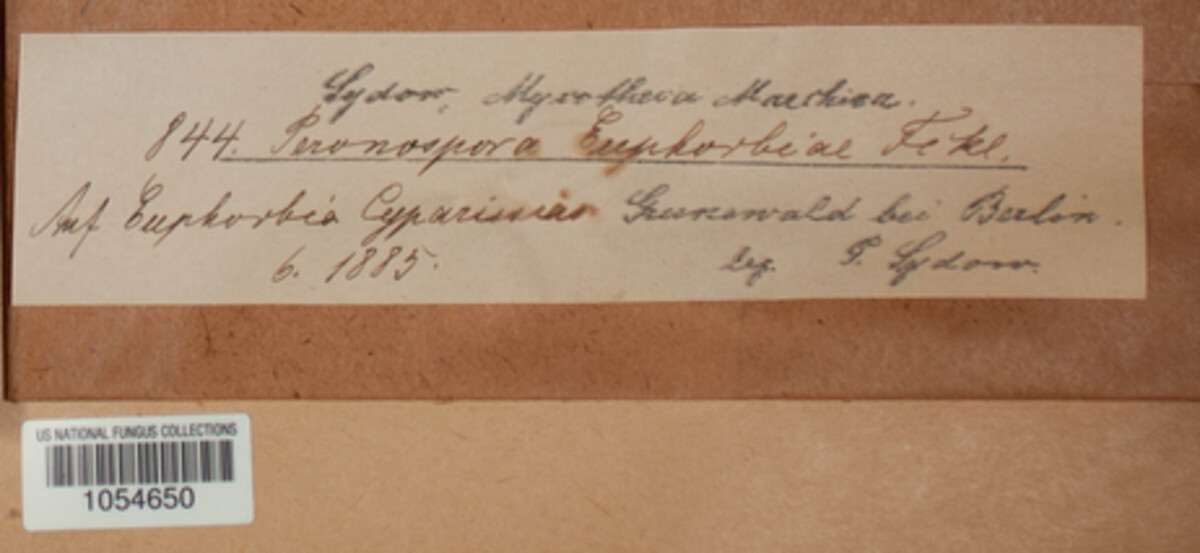 Sydow, Mycotheca Marchica.
844. Peronospora Euphorbiae Fckl.
Auf Euphorbia Cyparissias Grunewald bei Berlin.
6. 1885. leg. P. Sydow.
US NATIONAL FUNGUS COLLECTIONS
1054650